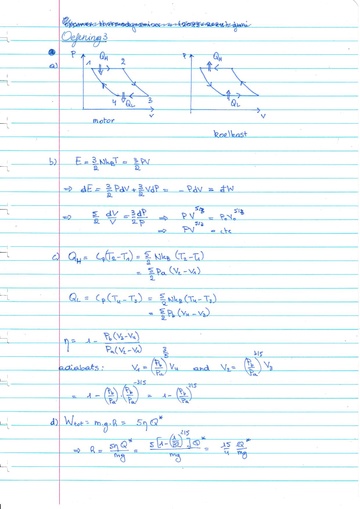 Oefening 3
a) P Q_H 1 2 4 3 Q_L V P Q_H Q_L V
motor koelkast
b) E = 3/2 Nk_BT = 3/2 PV
⇒ dE = 3/2 PdV + 3/2 VdP = - PdV = đW
⇒ 5/2 dV/V = - 3/2 dP/P ⇒ PV^5/3 = P_0V_0^5/3
⇒ PV^5/3 = cte
c) Q_H = C_p(T_2-T_1) = 5/2 Nk_B (T_2-T_1)
= 5/2 P_a (V_2-V_1)
Q_L = C_p (T_4-T_3) = 5/2 Nk_B (T_4-T_3)
= 5/2 P_b (V_4-V_3)
η = 1 - P_b(V_3-V_4) / P_a(V_2-V_1)
adiabats: V_1 = (P_b/P_a)^3/5 V_4 and V_2 = (P_b/P_a)^3/5 V_3
= 1 - (P_b/P_a) (P_b/P_a)^-3/5 = 1 - (P_b/P_a)^2/5
d) = m.g.R = 5η Q*
⇒ R = 5η Q* / mg = 5[1-(1/32)^2/5] Q* / mg = 15/4 Q*/mg